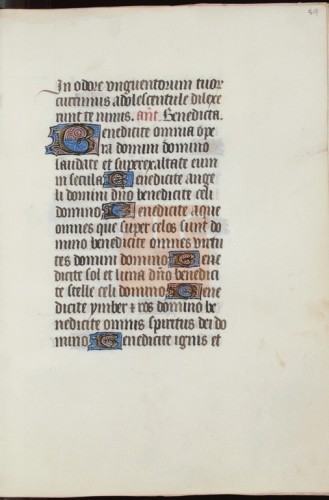 In odore vnguentorum tuor
currimus adolescentule dilexe
runt te nimis. ant. Benedicta.
Benedicite omnia ope
ra domini domino
laudate et superexaltate eum
in secula Benedicite ange
li domini dño benedicite celi
domino Benedicite aque
omnes que super celos sunt do
mino benedicite omnes virtu
tes domini domino Bene
dicite sol et luna dño benedici
te stelle celi domino Bene
dicite ymber ⁊ ros domino be
nedicite omnis spiritus dei do
mino Benedicite ignis et